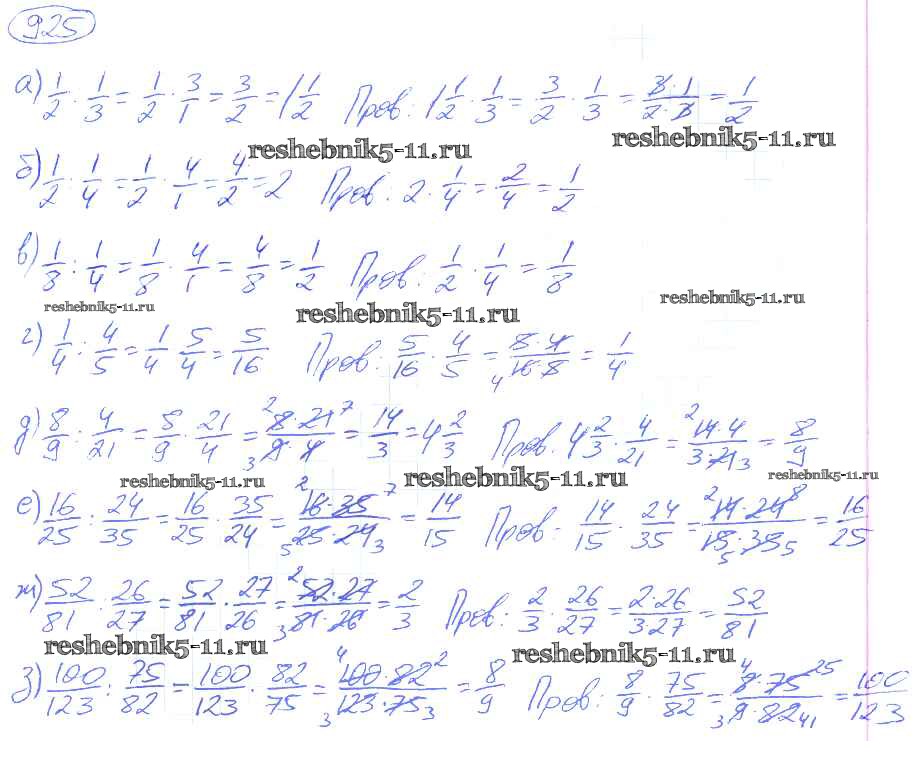 925
а) 1/2 : 1/3 = 1/2 · 3/1 = 3/2 = 1 1/2 Пров: 1 1/2 · 1/3 = 3/2 · 1/3 = 3·1/2·3 = 1/2
reshebnik5-11.ru reshebnik5-11.ru
б) 1/2 : 1/4 = 1/2 · 4/1 = 4/2 = 2 Пров: 2 · 1/4 = 2/4 = 1/2
в) 1/8 : 1/4 = 1/8 · 4/1 = 4/8 = 1/2 Пров: 1/2 · 1/4 = 1/8
reshebnik5-11.ru reshebnik5-11.ru reshebnik5-11.ru
г) 1/4 : 4/5 = 1/4 · 5/4 = 5/16 Пров: 5/16 · 4/5 = 5·4/16·5 4 = 1/4
д) 8/9 : 4/21 = 8/9 · 21/4 = 2 8·21 7/3 9·4 = 14/3 = 4 2/3 Пров. 4 2/3 · 4/21 = 2 14·4/3·21 3 = 8/9
reshebnik5-11.ru reshebnik5-11.ru reshebnik5-11.ru
е) 16/25 : 24/35 = 16/25 · 35/24 = 2 16·35 7/5 25·24 3 = 14/15 Пров: 14/15 · 24/35 = 2 14·24 8/15·35 5 5 = 16/25
ж) 52/81 : 26/27 = 52/81 · 27/26 = 2 52·27/3 81·26 = 2/3 Пров: 2/3 · 26/27 = 2·26/3·27 = 52/81
reshebnik5-11.ru reshebnik5-11.ru
з) 100/123 : 75/82 = 100/123 · 82/75 = 4 100·82 2/3 123·75 3 = 8/9 Пров: 8/9 · 75/82 = 4 8·75 25/3 9·82 41 = 100/123